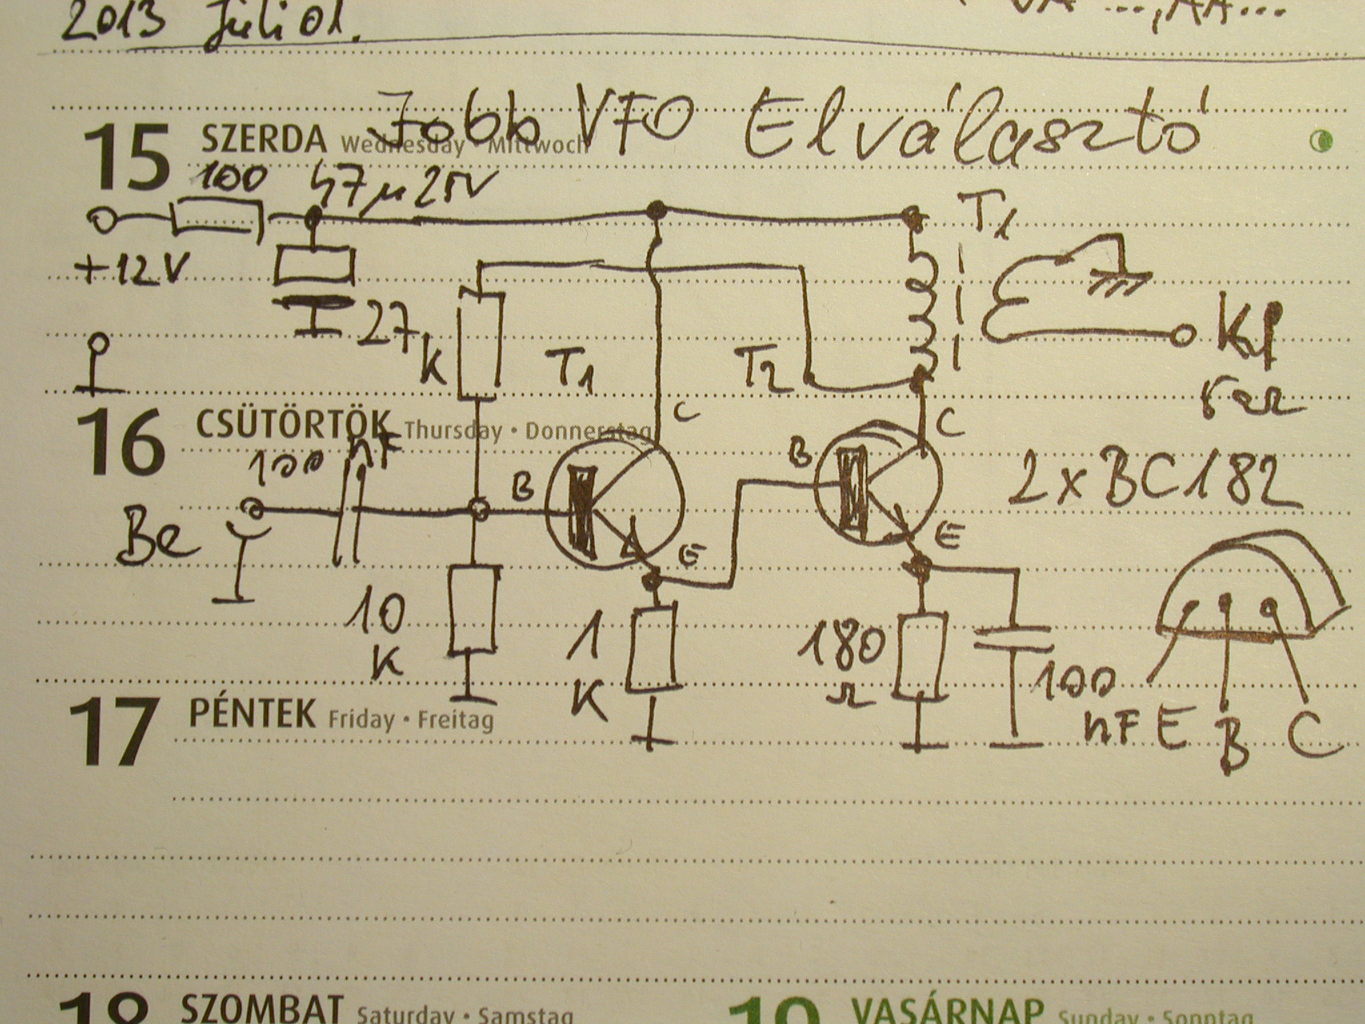 2013 Júli 01.
15 SZERDA Wednesday • Mittwoch
Jobb VFO Elválasztó
100 47µ 25V
T1
+12V
27
k
T1
T2
Ki
C
C
16 CSÜTÖRTÖK Thursday • Donnerstag
100 nF
B
B
2xBC182
Be
E
E
10
K
1
K
180
Ω
100
nF
E
B
C
17 PÉNTEK Friday • Freitag
18 SZOMBAT Saturday • Samstag
19 VASÁRNAP Sunday • Sonntag